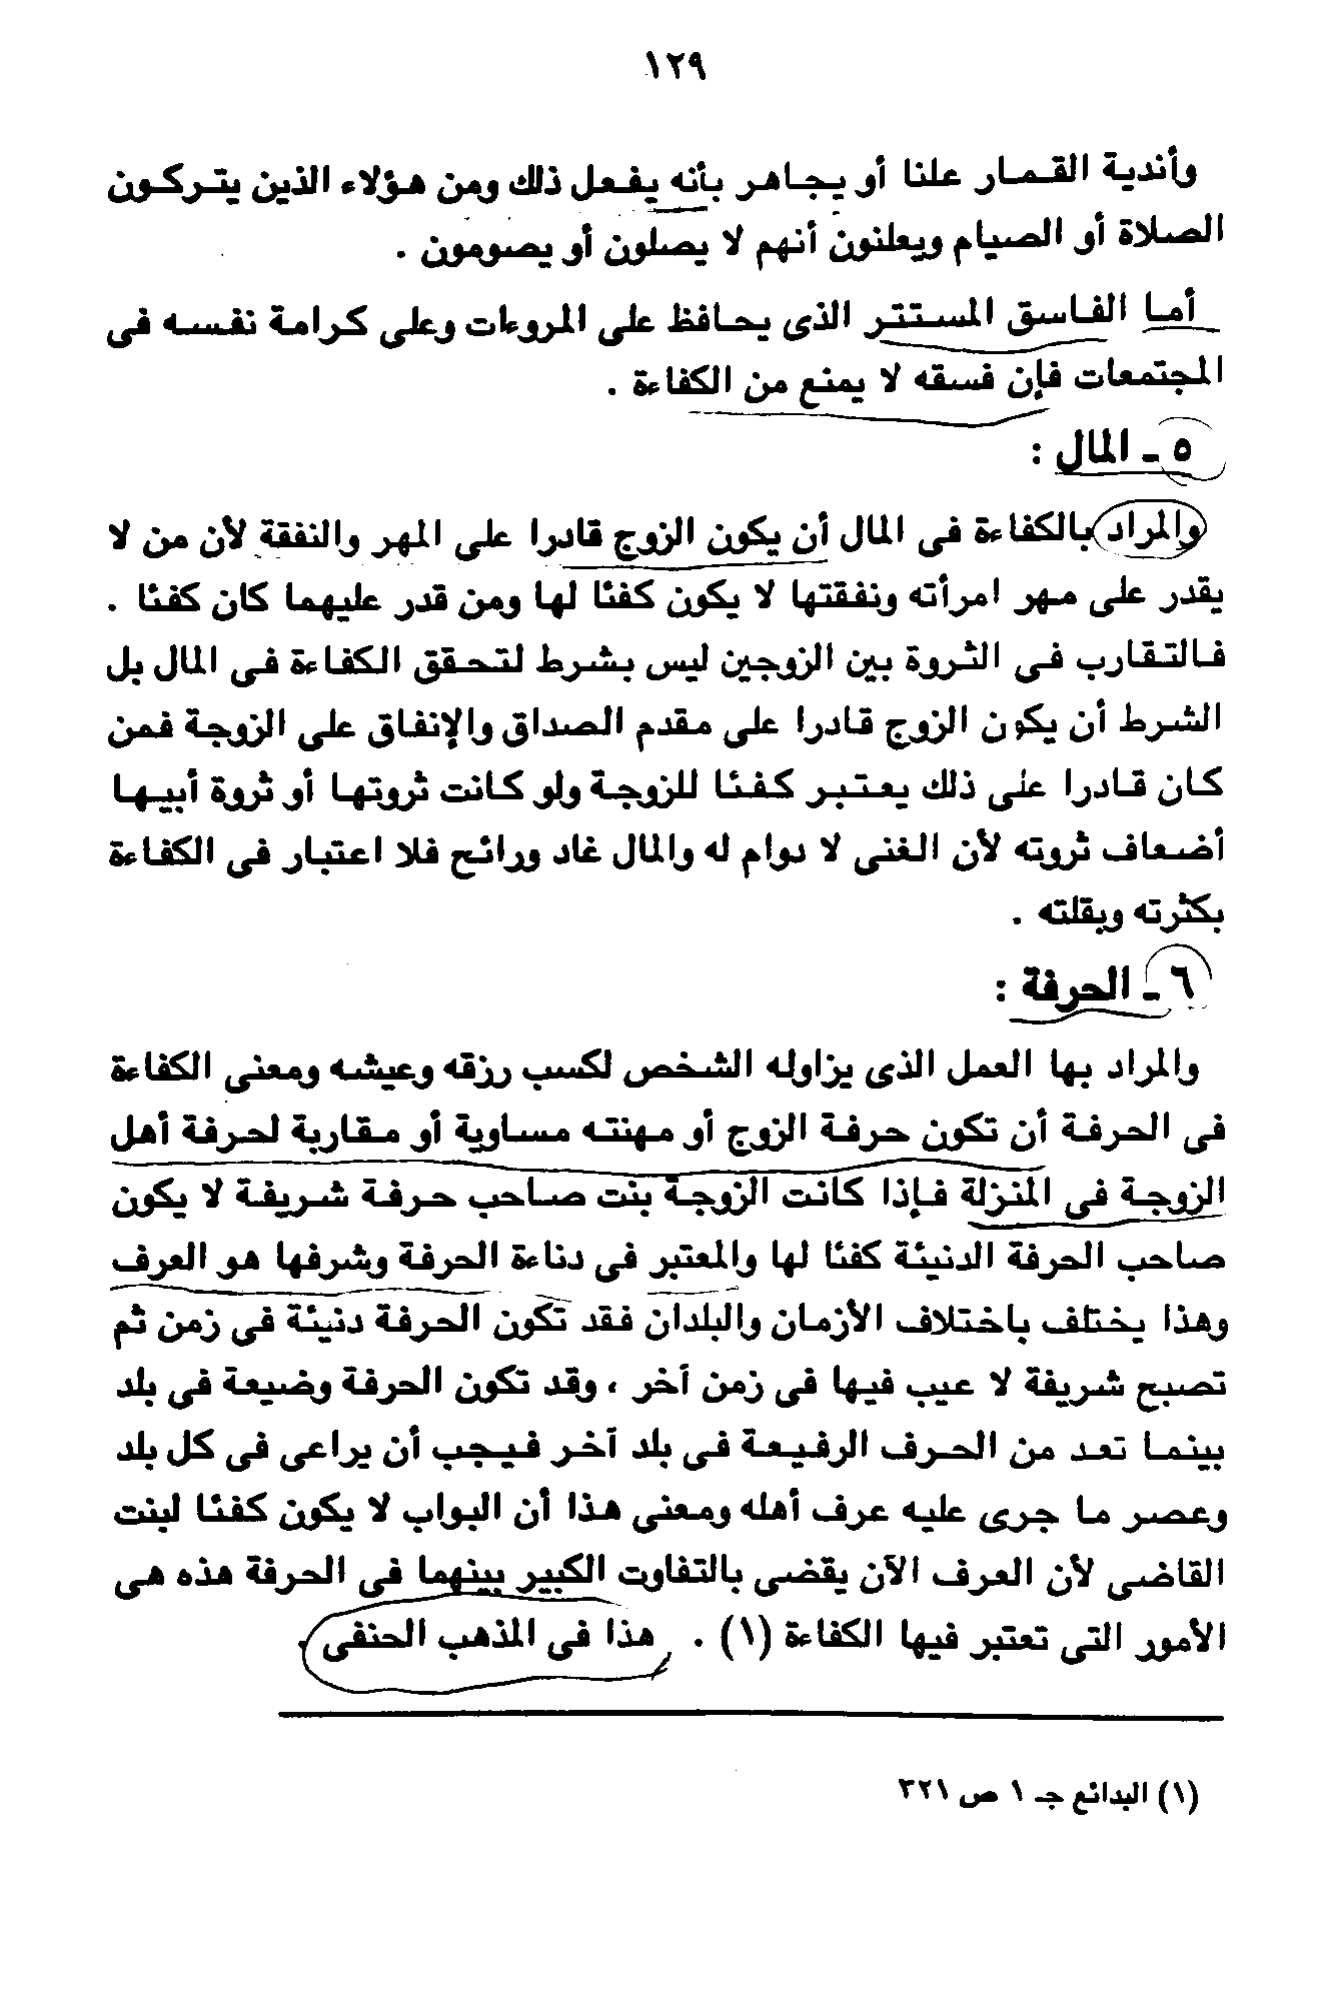 ١٢٩
وأندية القمار علنا أو يجاهر بأنه يفعل ذلك ومن هؤلاء الذين يتركون
الصلاة أو الصيام ويعلنون أنهم لا يصلون أو يصومون .
أما الفاسق المستتر الذى يحافظ على المروءات وعلى كرامة نفسه فى
المجتمعات فإن فسقه لا يمنع من الكفاءة .
٥ ـ المال :
والمراد بالكفاءة فى المال أن يكون الزوج قادرا على المهر والنفقة لأن من لا
يقدر على مهر امرأته ونفقتها لا يكون كفئا لها ومن قدر عليهما كان كفئا .
فالتقارب فى الثروة بين الزوجين ليس بشرط لتحقق الكفاءة فى المال بل
الشرط أن يكون الزوج قادرا على مقدم الصداق والإنفاق على الزوجة فمن
كان قادرا على ذلك يعتبر كفئا للزوجة ولو كانت ثروتها أو ثروة أبيها
أضعاف ثروته لأن الغنى لا دوام له والمال غاد ورائح فلا اعتبار فى الكفاءة
بكثرته وبقلته .
٦ ـ الحرفة :
والمراد بها العمل الذى يزاوله الشخص لكسب رزقه وعيشه ومعنى الكفاءة
فى الحرفة أن تكون حرفة الزوج أو مهنته مساوية أو مقاربة لحرفة أهل
الزوجة فى المنزلة فإذا كانت الزوجة بنت صاحب حرفة شريفة لا يكون
صاحب الحرفة الدنيئة كفئا لها والمعتبر فى دناءة الحرفة وشرفها هو العرف
وهذا يختلف باختلاف الأزمان والبلدان فقد تكون الحرفة دنيئة فى زمن ثم
تصبح شريفة لا عيب فيها فى زمن آخر ، وقد تكون الحرفة وضيعة فى بلد
بينما تعد من الحرف الرفيعة فى بلد آخر فيجب أن يراعى فى كل بلد
وعصر ما جرى عليه عرف أهله ومعنى هذا أن البواب لا يكون كفئا لبنت
القاضى لأن العرف الآن يقضى بالتفاوت الكبير بينهما فى الحرفة هذه هى
الأمور التى تعتبر فيها الكفاءة (١) . هذا فى المذهب الحنفى .
(١) البدائع جـ ١ ص ٣٢١